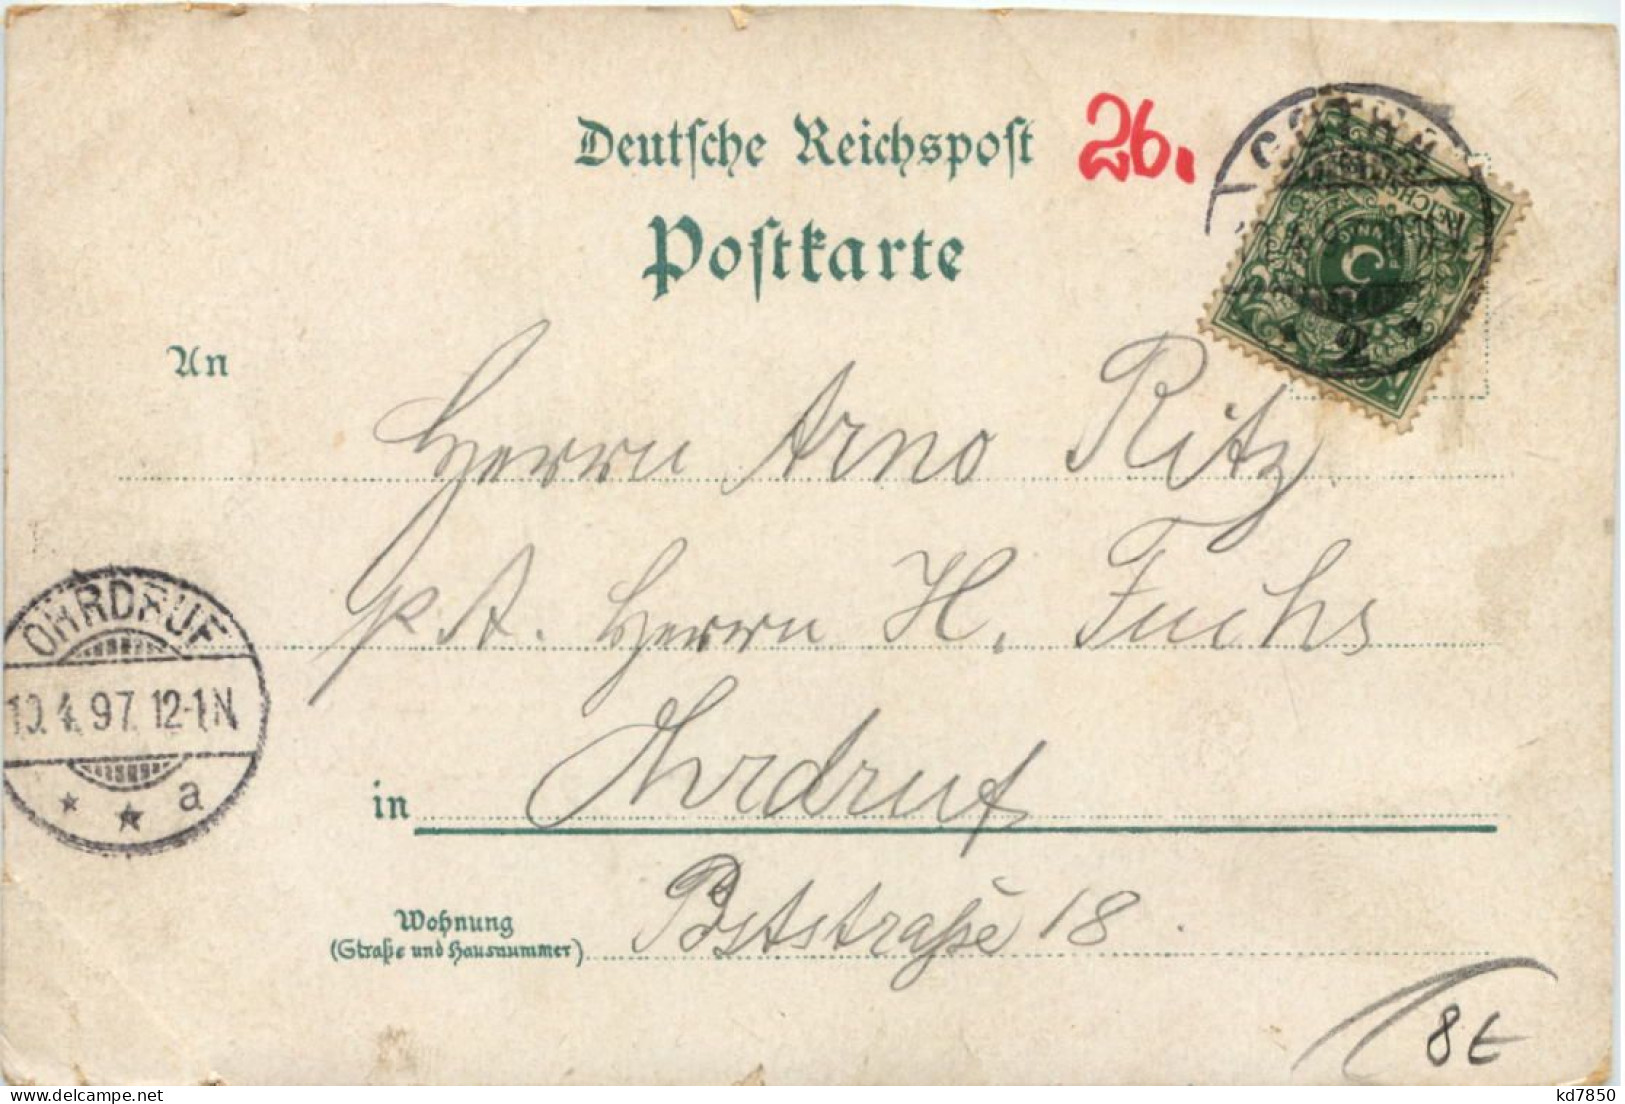 Deutsche Reichspost
26.
Postkarte
GOTHA
2
REICHSPOST
5
An
Herrn Arno Ritz.
p. A. Herrn H. Fuchs
OHRDRUF
10.4.97. 12-1N
a
in Ohrdruf
Wohnung
(Straße und Hausnummer)
Poststraße 18.
8€
kd7850